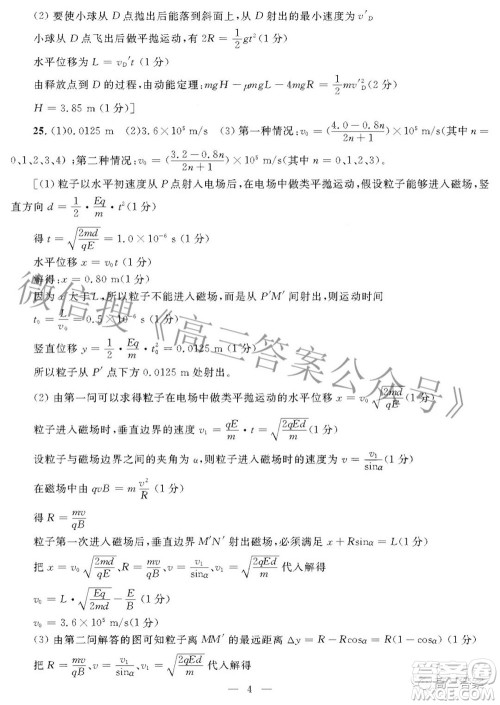 (2) 要使小球从 D 点抛出后能落到斜面上，从 D 射出的最小速度为 v′_D
小球从 D 点飞出后做平抛运动，有 2R = 1/2 gt²(1 分)
水平位移为 L = v_D′t(1 分)
由释放点到 D 的过程，由动能定理：mgH − μmgL − 4mgR = 1/2 mv′_D²(1 分)
H = 3.85 m(1 分)]
25. (1)0.0125 m(2)3.6×10⁵ m/s (3) 第一种情况：v₀ = (4.0−0.8n)/(2n+1) (n =
0、1、2、3、4)；第二种情况：v₀ = (3.2−0.8n)/(2n+1) (n = 0、1、2、3)
[(1) 粒子以水平初速度从 P 点射入电场后，在电场中做类平抛运动，假设粒子能够进入磁场，竖
直方向 d = 1/2 · Eq/m · t²(1 分)
得 t = √(2md/qE) = 1.0×10⁻⁶ s (1 分)
水平位移 x = v₀t(1 分)
解得：x = 0.80 m(1 分)
因为 x 大于 L，所以粒子不能进入磁场，而是从 P′M′ 间射出，则运动时间
t₀ = L/v₀ = 0.5×10⁻⁶ s(1 分)
竖直位移 y = 1/2 · Eq/m · t₀² = 0.0125 m(1 分)
所以粒子从 P′ 点下方 0.0125 m 处射出。
(2) 由第一问可以求得粒子在电场中做类平抛运动的水平位移 x = v₀√(2md/qE)
粒子进入磁场时，垂直边界的速度 v₁ = qE/m · t = √(2qEd/m)(1 分)
设粒子与磁场边界之间的夹角为 α，则粒子进入磁场时的速度为 v = v₁/sinα(1 分)
在磁场中由 qvB = m v²/R(1 分)
得 R = mv/qB
粒子第一次进入磁场后，垂直边界 M′N′ 射出磁场，必须满足 x + Rsinα = L(1 分)
把 x = v₀√(2md/qE)、R = mv/qB、v = v₁/sinα、v₁ = √(2qEd/m) 代入解得
v₀ = L · √(Eq/2md) − E/B(1 分)
v₀ = 3.6×10⁵ m/s(1 分)
(3) 由第二问解答的图可知粒子离 MM′ 的最远距离 Δy = R − Rcosα = R(1 − cosα)(1 分)
把 R = mv/qB、v = v₁/sinα、v₁ = √(2qEd/m) 代入解得
— 4 —
微信搜《高三答案公众号》